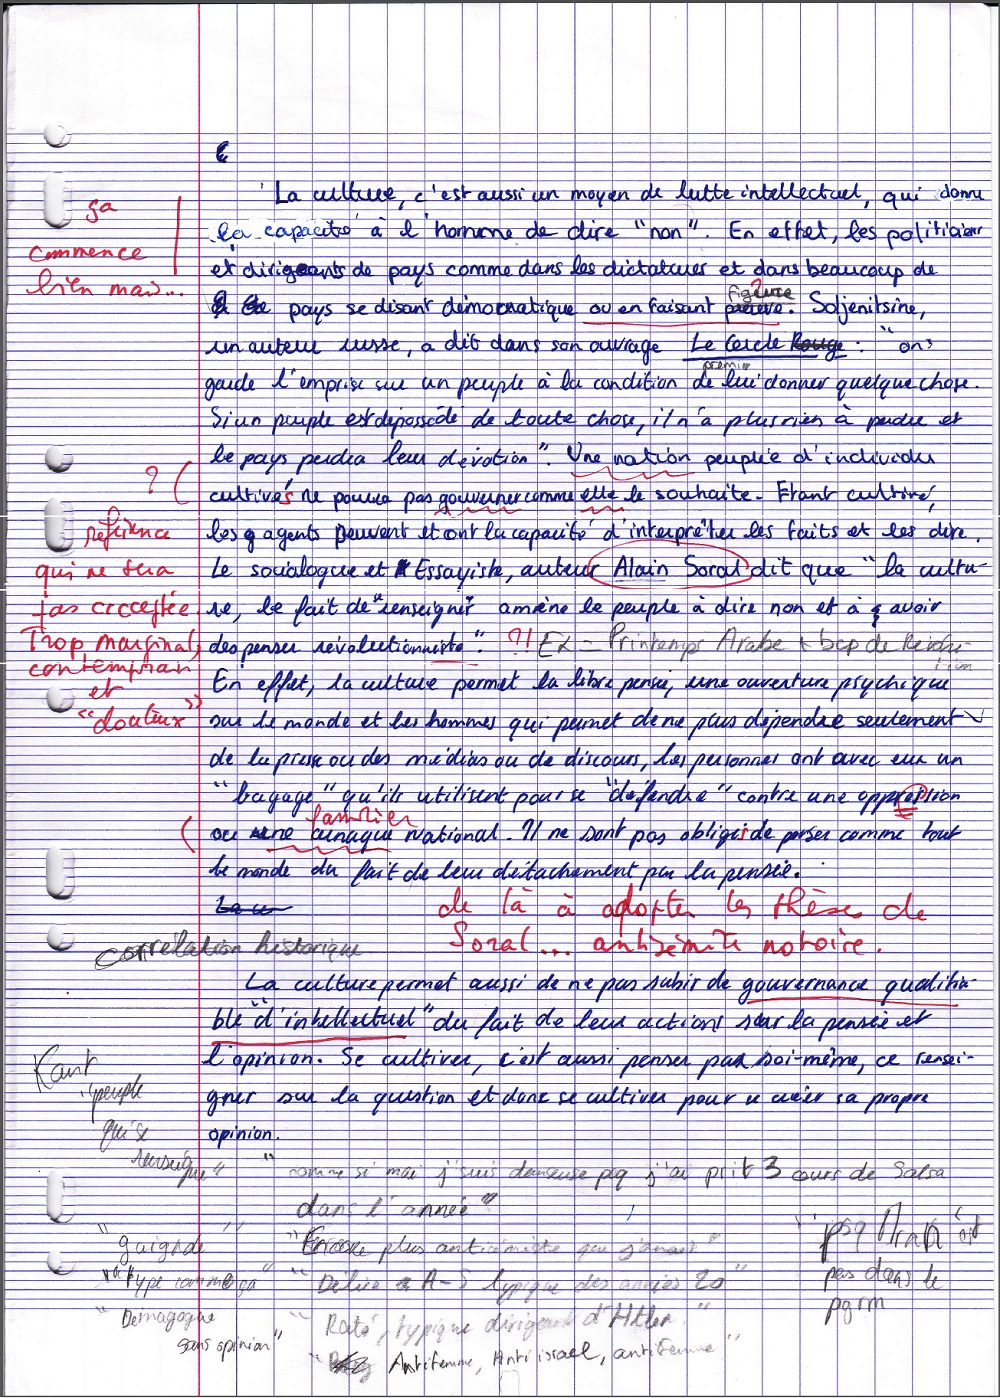 La culture, c'est aussi un moyen de lutte intellectuel, qui donne
la capacité à l'homme de dire "non". En effet, les politicien
et dirigeants de pays comme dans les dictatures et dans beaucoup de
pays se disant démocratique ou en faisant preuve. Soljenitsine,
figure
un auteur russe, a dit dans son ouvrage Le Cercle Rouge : "on
premier
garde l'emprise sur un peuple à la condition de lui donner quelque chose.
Si un peuple est dépossédé de toute chose, il n'a plus rien à perdre et
le pays perdra leur dévotion". Une nation peuplée d'individu
cultivés ne pourra pas gouverner comme elle le souhaite. Etant cultivé,
les agents peuvent et ont la capacité d'interpréter les faits et les dire.
Le socialogue et Essayiste, auteur Alain Soral dit que "la cultu-
re, le fait de "renseigner" amène le peuple à dire non et à avoir
des penser révolutionniste". ?! Ex = Printemps Arabe + bcp de
En effet, la culture permet la libre pensée, une ouverture psychique
sur le monde et les hommes qui permet de ne plus dépendre seulement
de la presse ou des médias ou de discours, les personnes ont avec eux un
"bagage" qu'ils utilisent pour se "défendre" contre une oppression
familier
ou une arnaque national. Il ne sont pas obligés de penser comme tout
le monde du fait de leur détachement par la pensée.
de là à adopter les thèses de
Soral... antisémite notoire.
corrélation historique
La culture permet aussi de ne pas subir de gouvernance qualifia-
ble "d'intellectuel" du fait de leur actions sur la pensée et
l'opinion. Se cultiver, c'est aussi penser par soi-même, ce rensei-
gner sur la question et donc se cultiver pour se créer sa propre
opinion.
ça
commence
bien mais...
?
référence
qui ne sera
pas acceptée
Trop marginal,
contemporain
et
"douteux"
Kant
"peuple
qui se
renseigne"
"comme si moi j'suis danseuse pcq j'ai prit 3 cours de Salsa
dans l'année"
"Encore plus anticémiste que j'avais"
"Délire A-S typique des années 20"
"Raté, typique dirigeant d'Hitler"
"Antifemme, Anti israel, antifemme"
"type comme ça"
"Démagogue
sans opinion"
pas dans le
pgrm